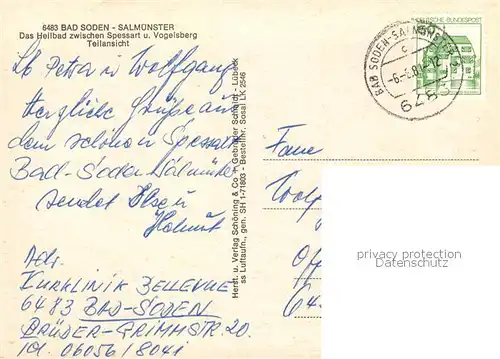 6483 BAD SODEN - SALMÜNSTER
Das Heilbad zwischen Spessart u. Vogelsberg
Teilansicht
Lb Petra u Wolfgang
Herzliche Grüße aus
dem schönen Spessart
Bad-Soden Salmünster
sendet Ilse u
Helmut
Adr.
KURKLINIK BELLEVUE
6483 BAD-SODEN
BRÜDER-GRIMMSTR 20.
Tel. 06056/8041
Herst. u. Verlag Schöning & Co + Gebrüder Schmidt - Lübeck
ss Luftaufn., gen. SH 1-71803 - Bestellnr. Sosa LK 2546
DEUTSCHE BUNDESPOST
BAD SODEN-SALMÜNSTER 2
Fam
Wolf
Off
64
privacy protection
datenschutz